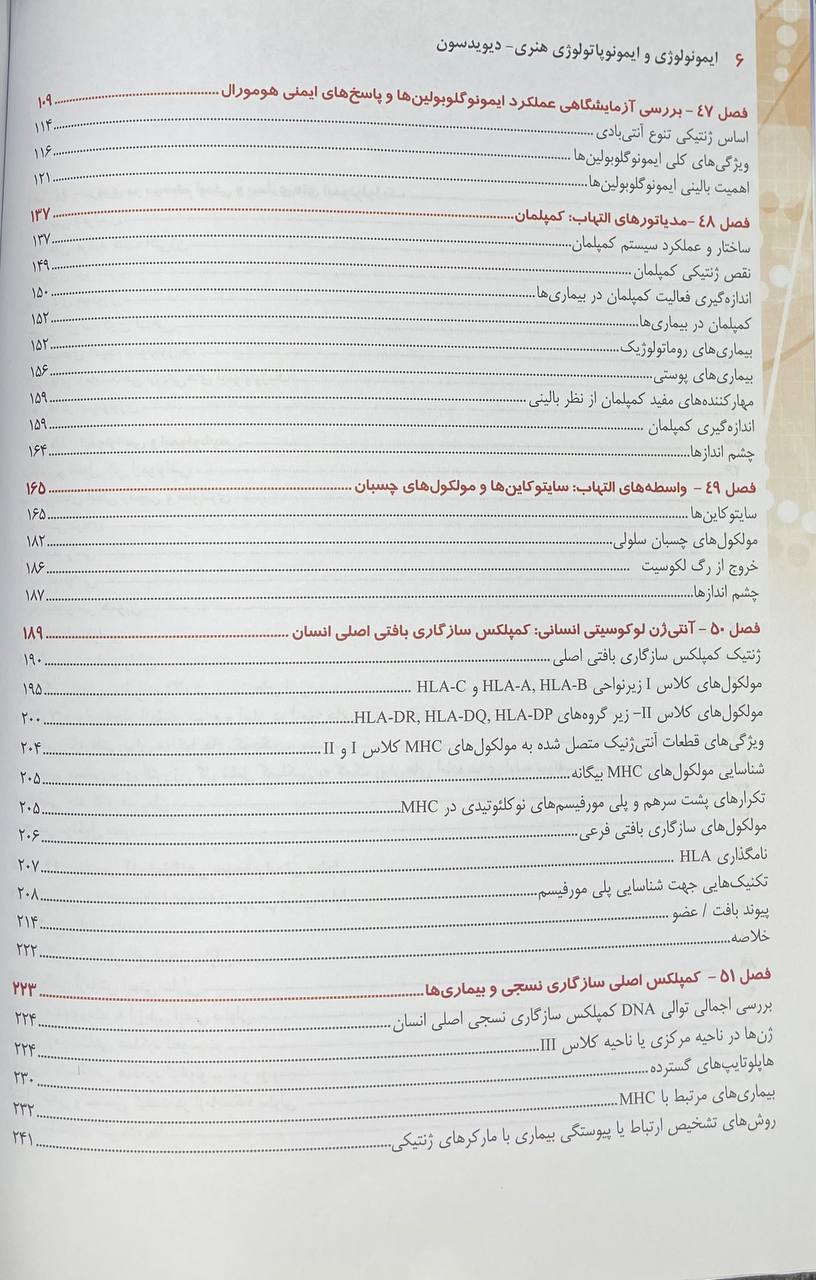 ۶ ایمونولوژی و ایمونوپاتولوژی هنری- دیویدسون
فصل ۴۷- بررسی آزمایشگاهی عملکرد ایمونوگلوبولین‌ها و پاسخ‌های ایمنی هومورال ..... ۱۰۹
اساس ژنتیکی تنوع آنتی‌بادی ..... ۱۱۴
ویژگی‌های کلی ایمونوگلوبولین‌ها ..... ۱۱۶
اهمیت بالینی ایمونوگلوبولین‌ها ..... ۱۲۱
فصل ۴۸-مدیاتورهای التهاب: کمپلمان ..... ۱۳۷
ساختار و عملکرد سیستم کمپلمان ..... ۱۳۷
نقص ژنتیکی کمپلمان ..... ۱۴۹
اندازه‌گیری فعالیت کمپلمان در بیماری‌ها ..... ۱۵۰
کمپلمان در بیماری‌ها ..... ۱۵۲
بیماری‌های روماتولوژیک ..... ۱۵۲
بیماری‌های پوستی ..... ۱۵۶
مهارکننده‌های مفید کمپلمان از نظر بالینی ..... ۱۵۹
اندازه‌گیری کمپلمان ..... ۱۵۹
چشم اندازها ..... ۱۶۴
فصل ۴۹- واسطه‌های التهاب: سایتوکاین‌ها و مولکول‌های چسبان ..... ۱۶۵
سایتوکاین‌ها ..... ۱۶۵
مولکول‌های چسبان سلولی ..... ۱۸۲
خروج از رگ لکوسیت ..... ۱۸۶
چشم اندازها ..... ۱۸۷
فصل ۵۰- آنتی‌ژن لوکوسیتی انسانی: کمپلکس سازگاری بافتی اصلی انسان ..... ۱۸۹
ژنتیک کمپلکس سازگاری بافتی اصلی ..... ۱۹۰
مولکول‌های کلاس I زیرنواحی HLA-A, HLA-B و HLA-C ..... ۱۹۵
مولکول‌های کلاس II- زیر گروه‌های HLA-DR, HLA-DQ, HLA-DP ..... ۲۰۰
ویژگی‌های قطعات آنتی‌ژنیک متصل شده به مولکول‌های MHC کلاس I و II ..... ۲۰۴
شناسایی مولکول‌های MHC بیگانه ..... ۲۰۵
تکرارهای پشت سرهم و پلی مورفیسم‌های نوکلئوتیدی در MHC ..... ۲۰۵
مولکول‌های سازگاری بافتی فرعی ..... ۲۰۶
نامگذاری HLA ..... ۲۰۷
تکنیک‌هایی جهت شناسایی پلی مورفیسم ..... ۲۰۸
پیوند بافت / عضو ..... ۲۱۴
خلاصه ..... ۲۲۲
فصل ۵۱- کمپلکس اصلی سازگاری نسجی و بیماری‌ها ..... ۲۲۳
بررسی اجمالی توالی DNA کمپلکس سازگاری نسجی اصلی انسان ..... ۲۲۴
ژن‌ها در ناحیه مرکزی یا ناحیه کلاس III ..... ۲۲۴
هاپلوتایپ‌های گسترده ..... ۲۳۰
بیماری‌های مرتبط با MHC ..... ۲۳۲
روش‌های تشخیص ارتباط یا پیوستگی بیماری با مارکرهای ژنتیکی ..... ۲۴۱